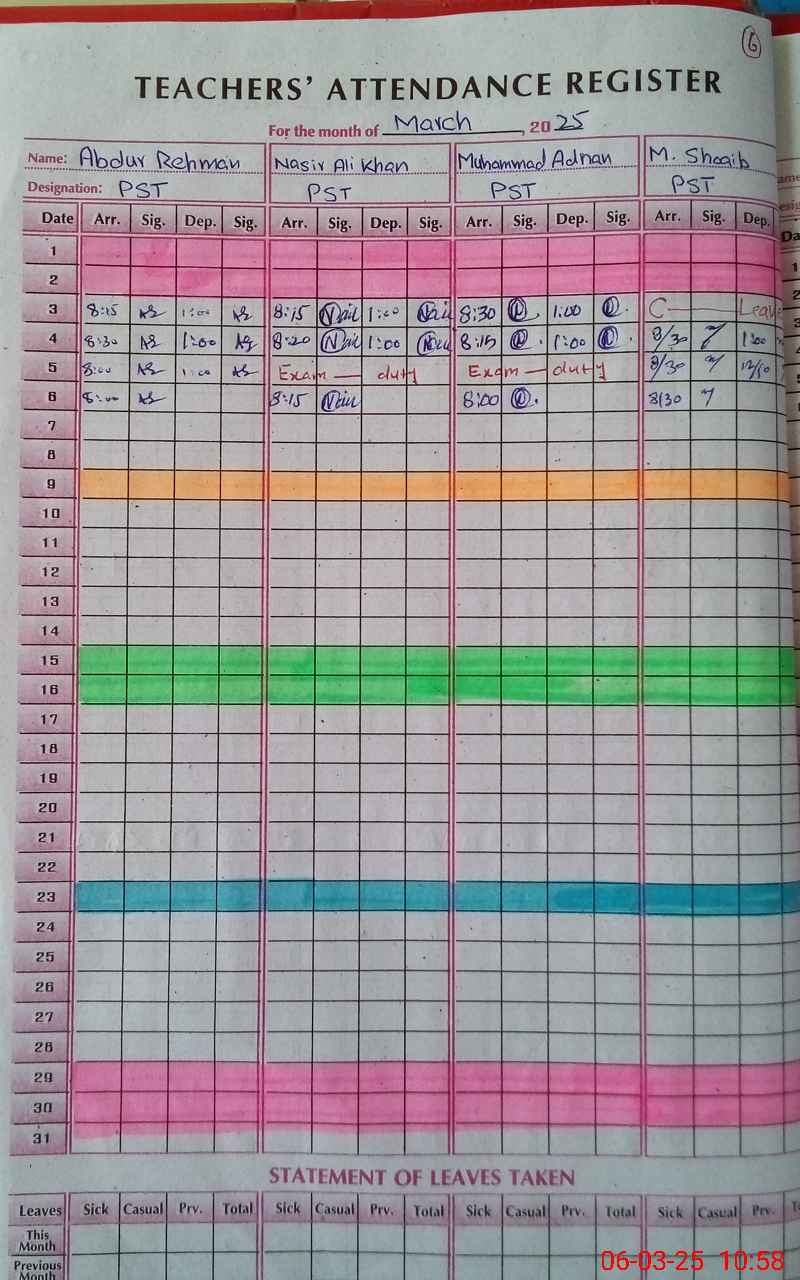 6
TEACHERS' ATTENDANCE REGISTER
For the month of March, 2025
Name: Abdur Rehman Nasir Ali Khan Muhammad Adnan M. Shoaib
Designation: PST PST PST PST
Date Arr. Sig. Dep. Sig. Arr. Sig. Dep. Sig. Arr. Sig. Dep. Sig. Arr. Sig. Dep.
1
2
3 8:15 1:00 8:15 1:00 8:30 1:00 C Leave
4 8:30 1:00 8:20 1:00 8:15 1:00 8/30 1:00
5 8:00 1:00 Exam — duty Exam — duty 8/30 12/10
6 8:00 8:15 8:00 8/30
7
8
9
10
11
12
13
14
15
16
17
18
19
20
21
22
23
24
25
26
27
28
29
30
31
STATEMENT OF LEAVES TAKEN
Leaves Sick Casual Prv. Total Sick Casual Prv. Total Sick Casual Prv. Total Sick Casual Prv.
This
Month
Previous
Month
06-03-25 10:58